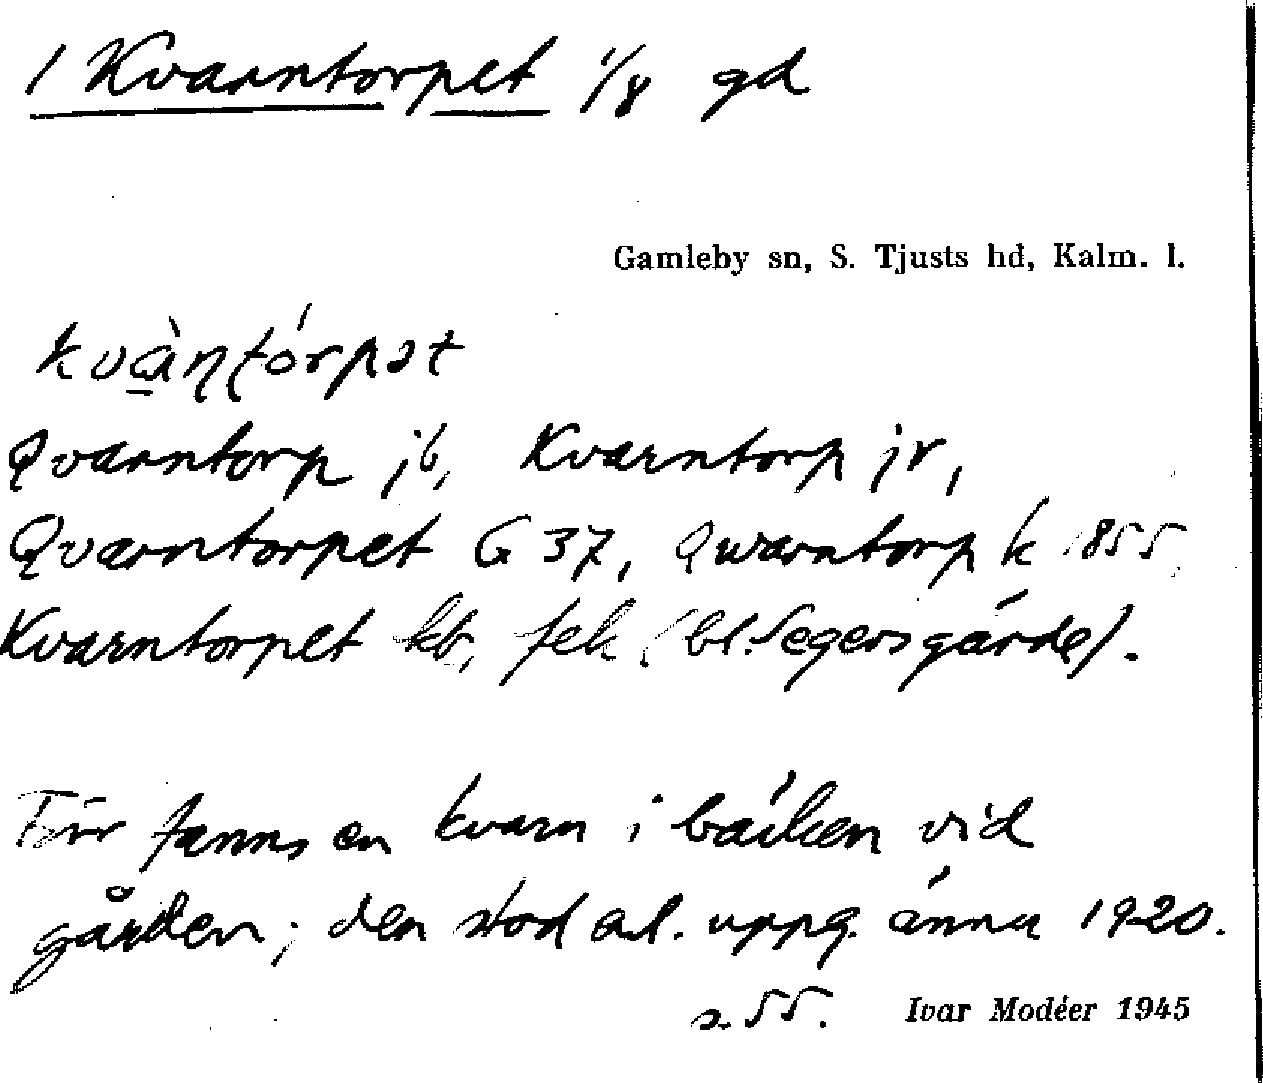 1 Kvarntorpet 1/8 gd
Gamleby sn, S. Tjusts hd, Kalm. l.
kvàṇṭórpət
Qvarntorp jb, Kvarntorp jr,
Qvarntorpet G 37, Qwarntorp k 1855,
Kvarntorpet kb, fek (bl. Segersgärde).
Förr fanns en kvarn i bäcken vid
gården; den stod enl. uppg. ännu 1920.
s. 55. Ivar Modéer 1945